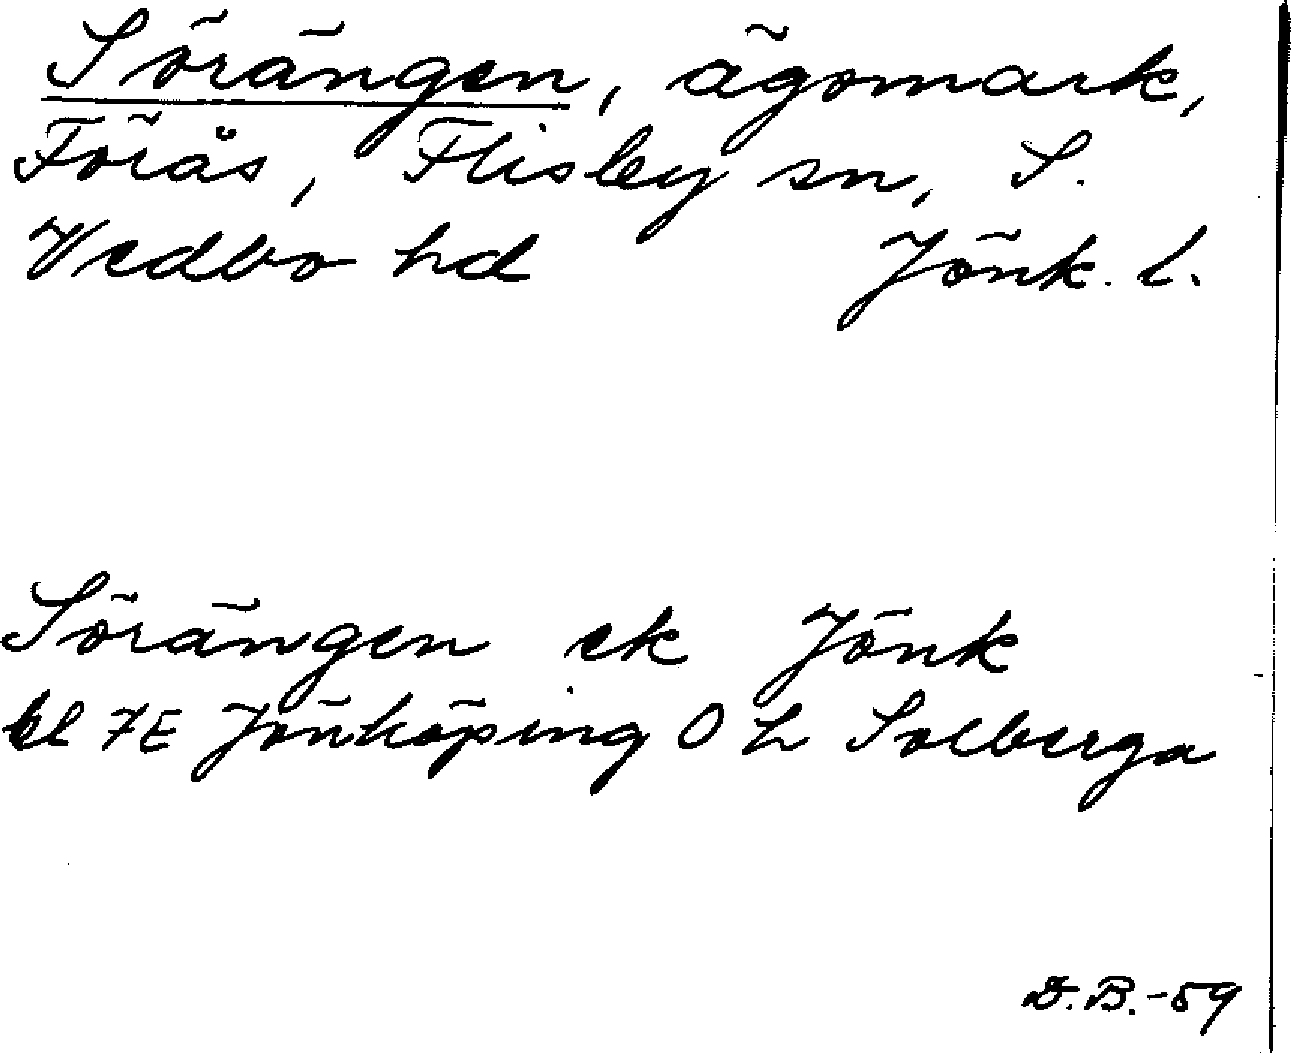 Sörängen, ägomark,
Förås, Flisby sn, S.
Vedbo hd Jönk. l.
Sörängen ek Jönk
bl 7E Jönköping O L Solberga
D.B.-59